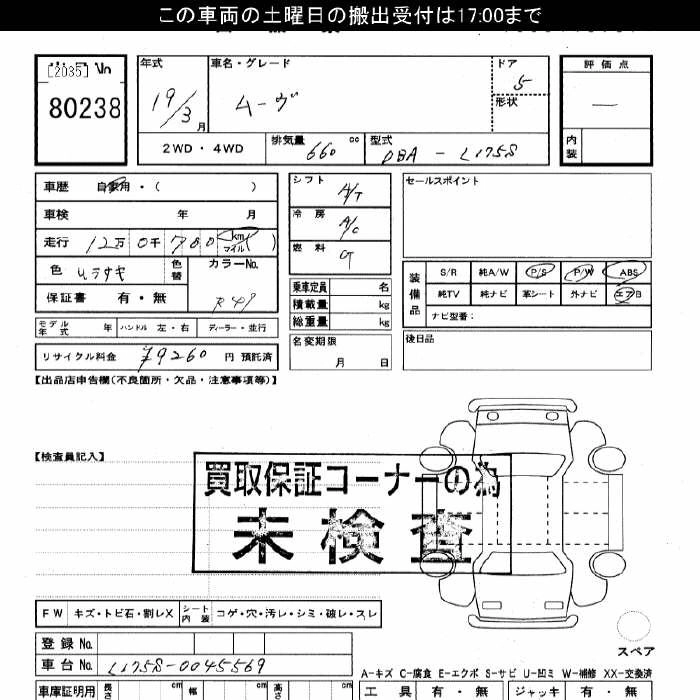 この車両の土曜日の搬出受付は17:00まで
[2035] No
80238
年式 19/3 月
車名・グレード ムーヴ
ドア 5
形状
評価点 —
内装
2WD・4WD
排気量 660 cc
型式 DBA-L175S
車歴 自家用・( )
車検 年 月
走行 12万0千780 km マイル ( )
色 ムラサキ
色替
カラーNo.
保証書 有・無
シフト A/T
冷房 A/C
燃料 G
乗車定員 名
積載量 kg
総重量 kg
セールスポイント
装備品
S/R 純A/W P/S P/W ABS
純TV 純ナビ 革シート 外ナビ エアB
ナビ型番:
モデル年式 年 ハンドル 左・右 ディーラー・並行
名変期限 月 日
後日品
リサイクル料金 ¥9260 円 預託済
【出品店申告欄(不良箇所・欠品・注意事項等)】
【検査員記入】
買取保証コーナーの為
未検査
FW キズ・トビ石・割レX シート内装 コゲ・穴・汚レ・シミ・破レ・スレ
スペア
登録No.
車台No. L175S-0045569
A-キズ C-腐食 E-エクボ S-サビ U-凹ミ W-補修 XX-交換済
車庫証明用 長さ cm 幅 cm 高さ cm
工具 有・無 ジャッキ 有・無